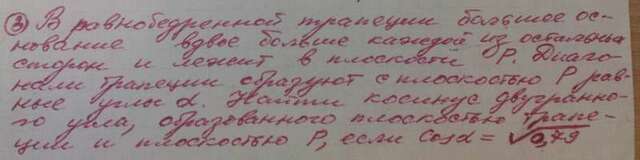 ③ В равнобедренной трапеции большое ос-
нование вдвое больше каждой из остальных
сторон и лежит в плоскости P. Диаго-
нали трапеции образуют с плоскостью P рав-
ные углы α. Найти косинус двугранно-
го угла, образованного плоскостью трапе-
ции и плоскостью P, если Cosα = √0,79